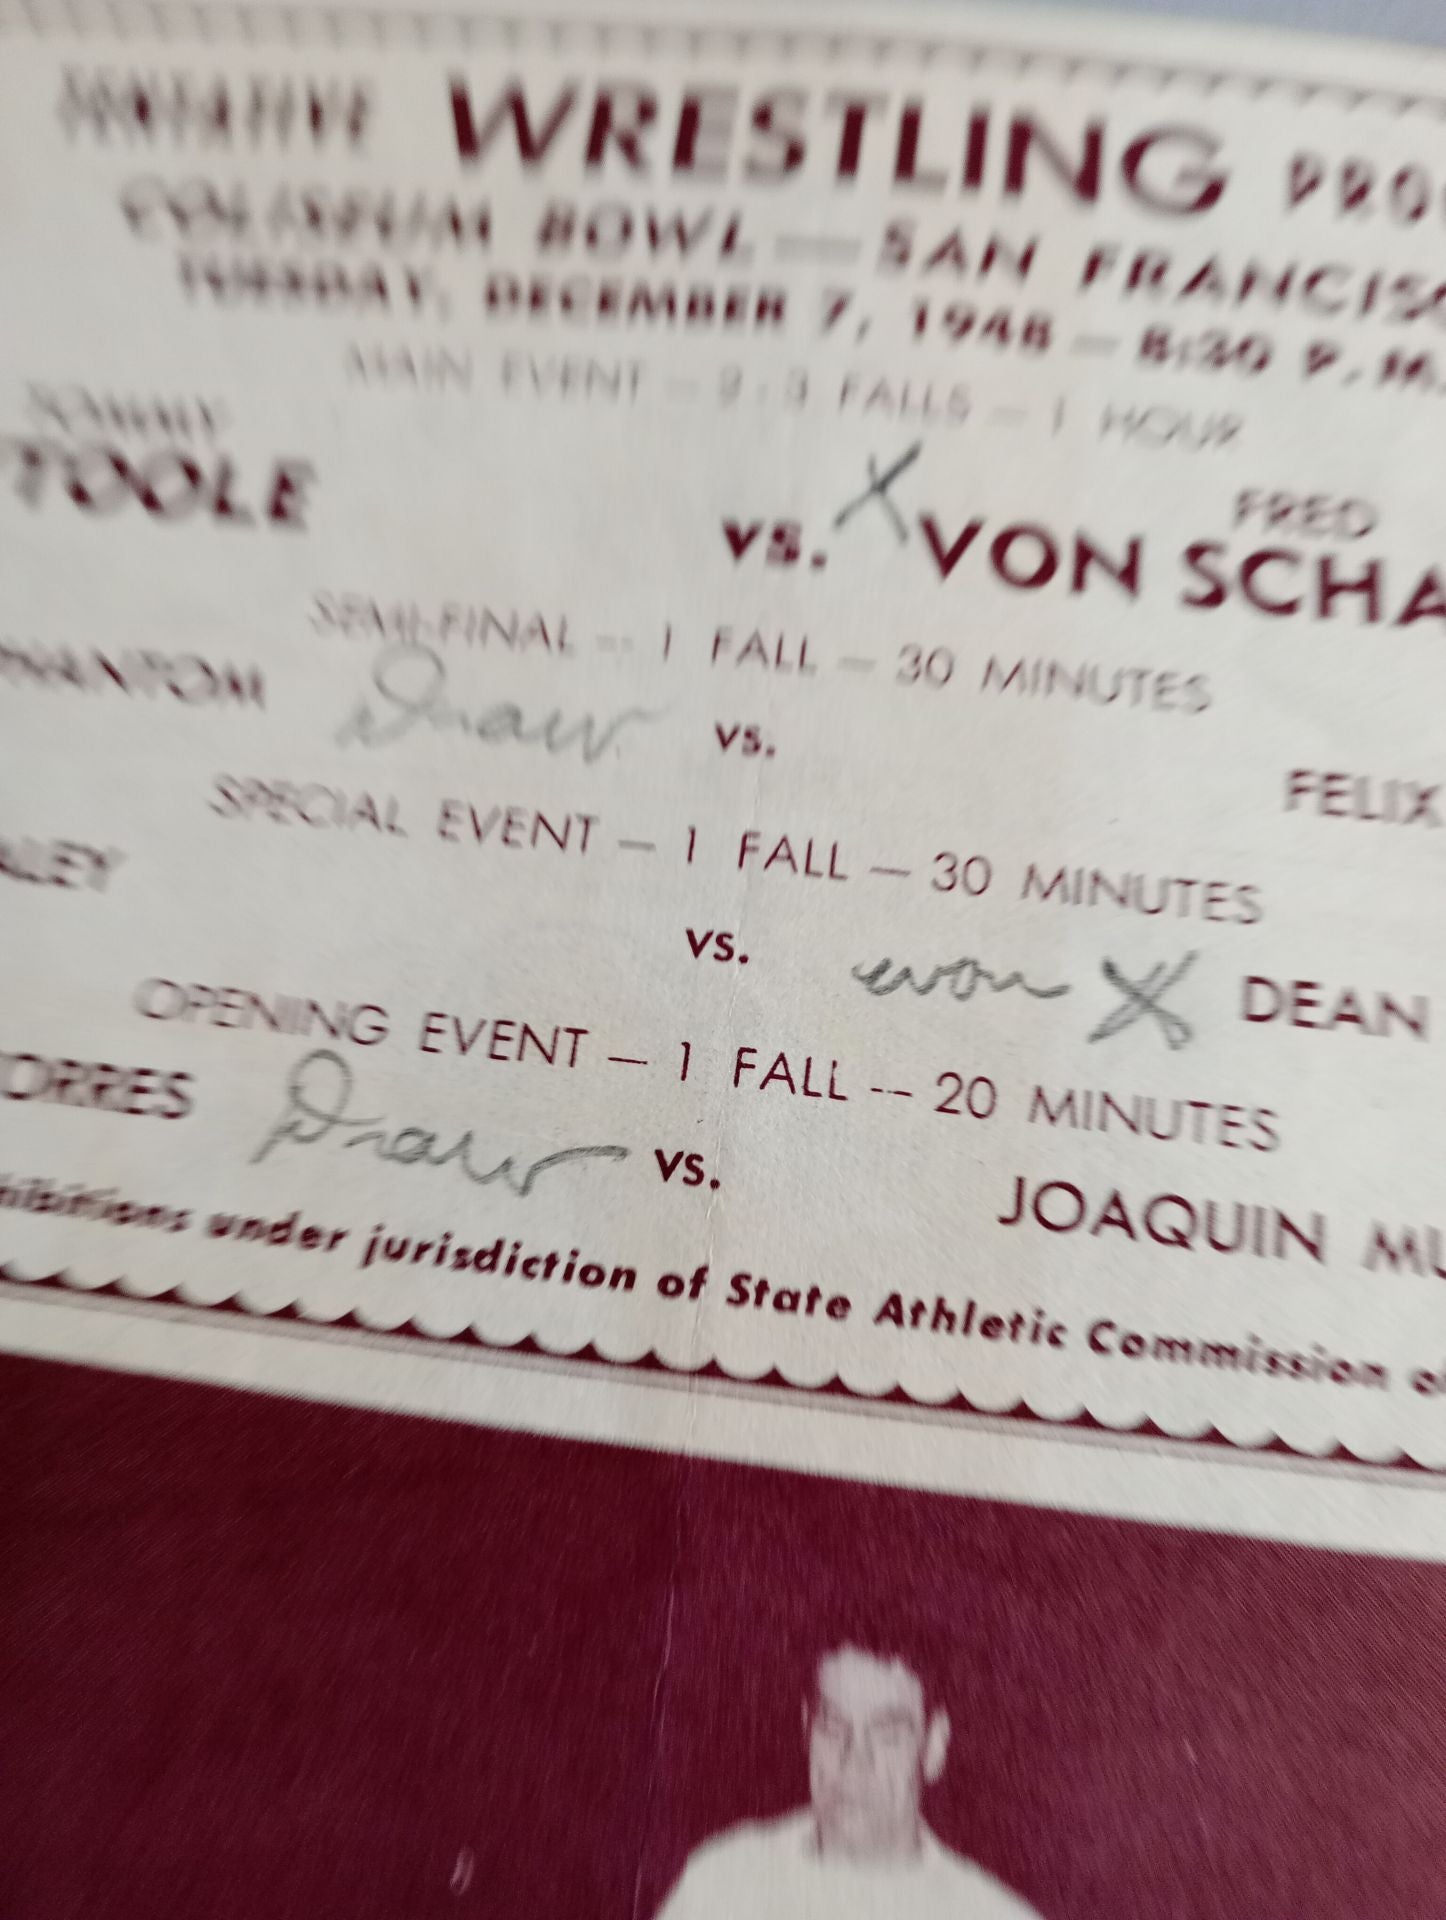 TENTATIVE WRESTLING PRO
COLISEUM BOWL — SAN FRANCISC
TUESDAY, DECEMBER 7, 1948 — 8:30 P.M.
MAIN EVENT — 2-3 FALLS — 1 HOUR
SAMMY FRED
TOOLE vs. X VON SCHA
SEMI-FINAL -- 1 FALL — 30 MINUTES
PHANTOM Draw vs. FELIX
SPECIAL EVENT — 1 FALL — 30 MINUTES
ALEY vs. won X DEAN
OPENING EVENT — 1 FALL -- 20 MINUTES
ORRES Draw vs. JOAQUIN MU
hibitions under jurisdiction of State Athletic Commission of